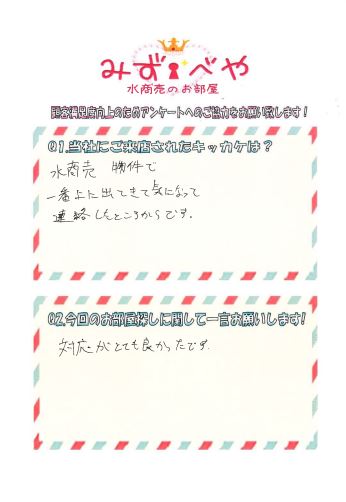 みず べや
水商売のお部屋
顧客満足度向上のためアンケートへのご協力をお願い致します!
Q1.当社にご来店されたキッカケは?
水商売 物件で
一番上に出てきて気になって
連絡したところからです.
Q2.今回のお部屋探しに関して一言お願いします!
対応がとても良かったです.